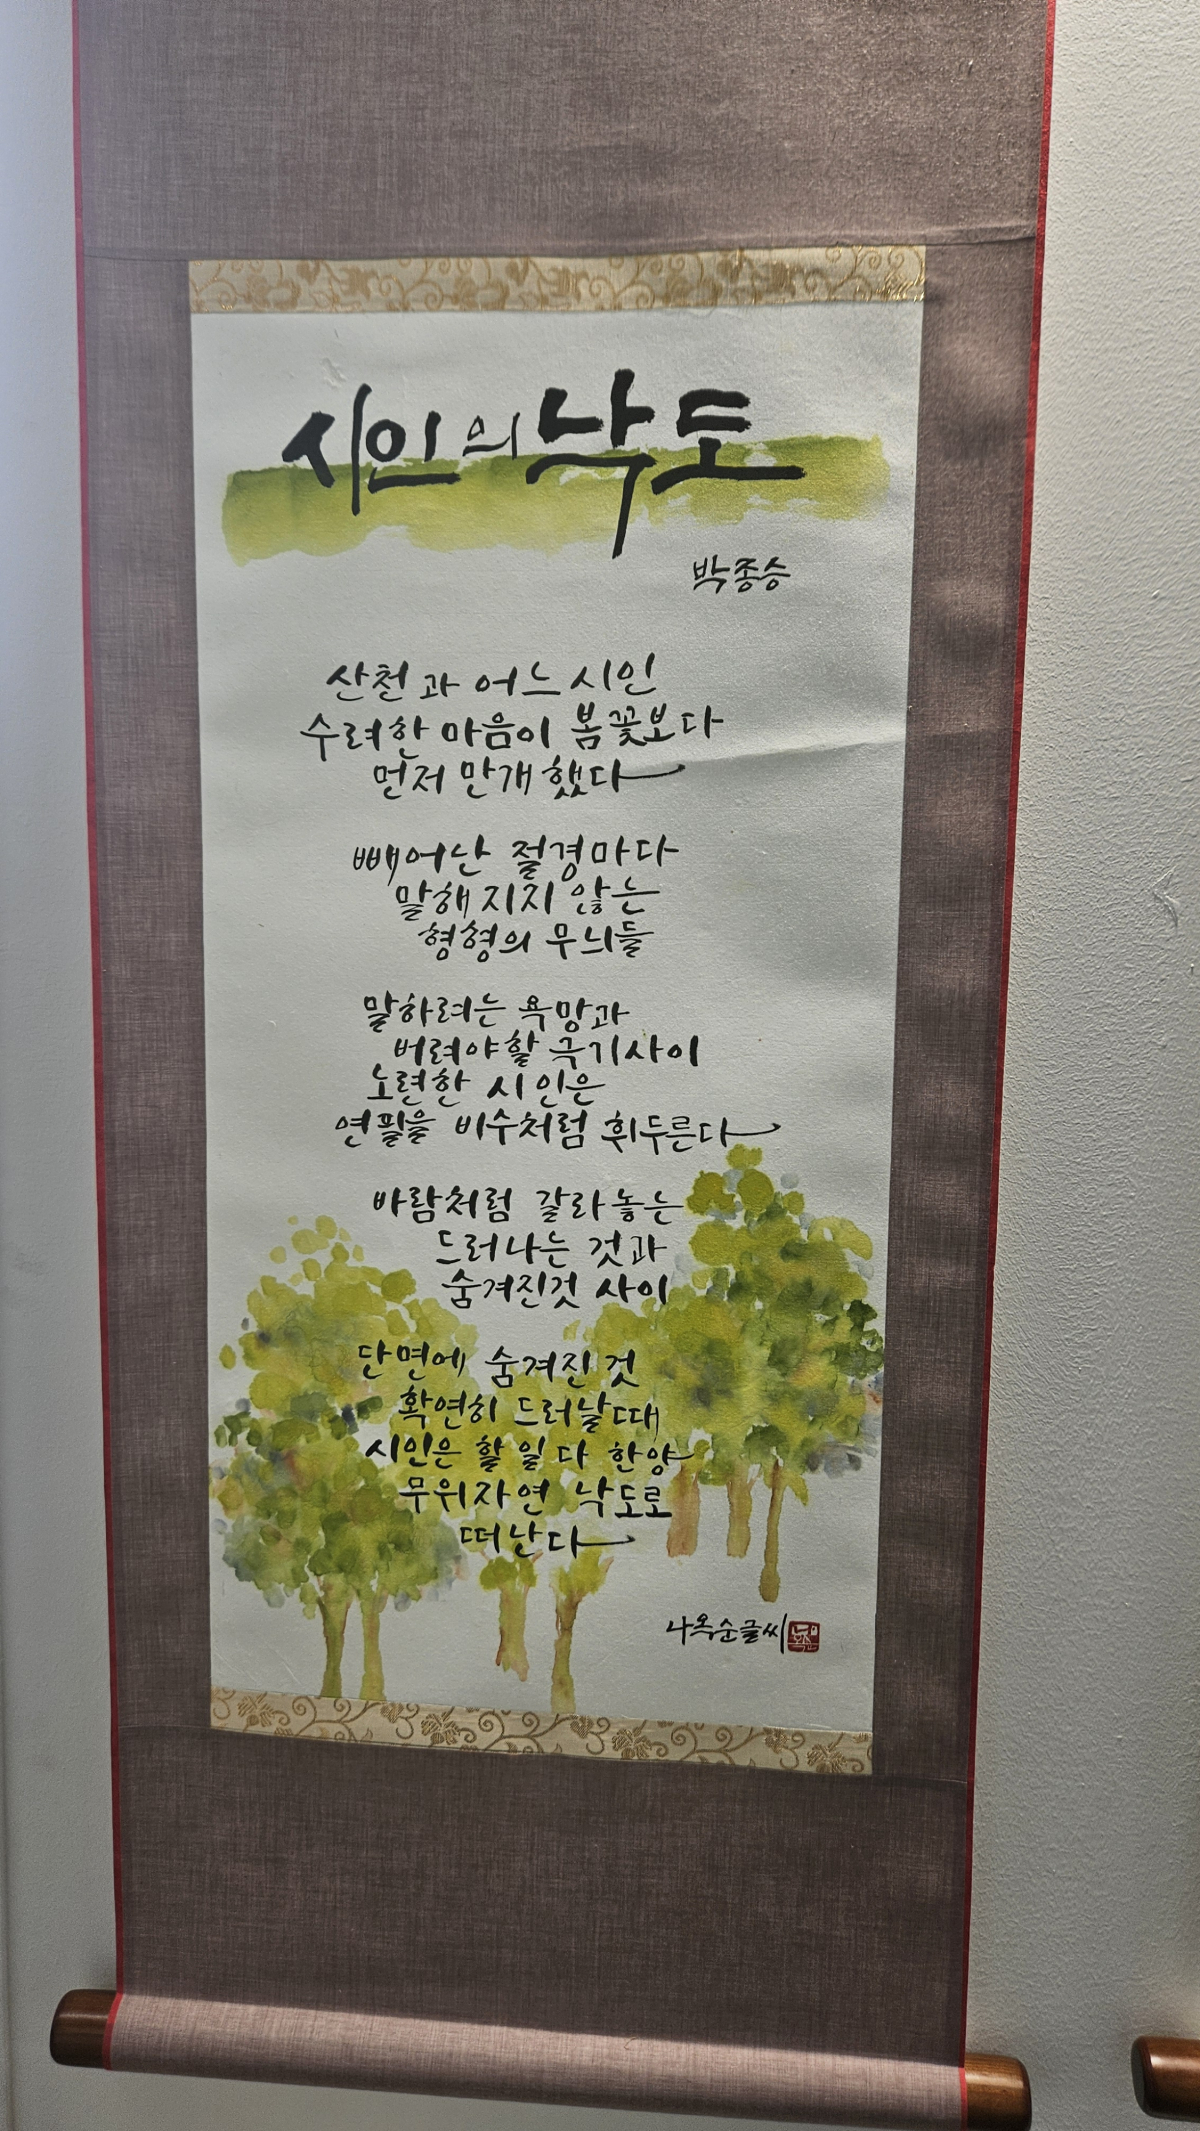 시인의 낙도
박종승
산천과 어느 시인
수려한 마음이 봄꽃보다
먼저 만개했다
빼어난 절경마다
말해지지 않는
형형의 무늬들
말하려는 욕망과
버려야할 극기사이
노련한 시인은
연필을 비수처럼 휘두른다
바람처럼 갈라놓는
드러나는 것과
숨겨진것 사이
단면에 숨겨진 것
확연히 드러날때
시인은 할 일 다 한양
무위자연 낙도로
떠난다
나옥순글씨